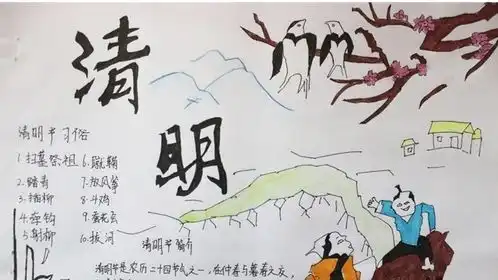 清
明
清明节习俗
1.扫墓祭祖 6.蹴鞠
2.踏青 7.放风筝
3.插柳 8.斗鸡
4.牵钩 9.蚕花会
5.射柳 10.拔河
清明节简介
清明节是农历二十四节气之一，在仲春与暮春之交，